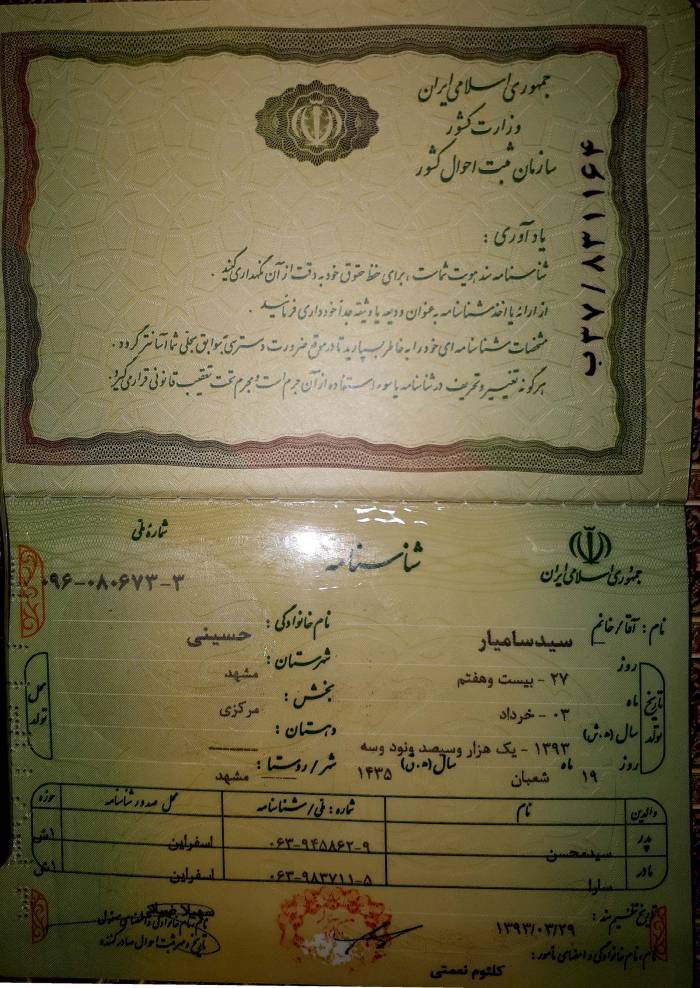 جمهوری اسلامی ایران
وزارت کشور
سازمان ثبت احوال کشور
ب۳۷/۸۳۱۱۶۴
یادآوری :
شناسنامه سند هویت شماست ، برای حفظ حقوق خود به دقت از آن نگهداری کنید .
از ارائه یا اخذ شناسنامه به عنوان ودیعه یا وثیقه جداً خودداری فرمائید .
مشخصات شناسنامه ای خود را به خاطر بسپارید تا در موقع ضرورت دسترسی به سوابق سجلی شما آسانتر گردد .
هرگونه تغییر و تحریف در شناسنامه یا سوء استفاده از آن جرم است و مجرم تحت تعقیب قانونی قرار می گیرد.
جمهوری اسلامی ایران
شناسنامه
شمارهٔ ملی
۰۹۶-۰۸۰۶۷۳-۳
نام : آقا/خانم سیدسامیار
نام خانوادگی : حسینی
تاریخ تولد
روز ۲۷ - بیست وهفتم
ماه ۰۳ - خرداد
سال (ه.ش) ۱۳۹۳ - یک هزار وسیصد ونود وسه
روز ۱۹ ماه شعبان سال (ه.ق) ۱۴۳۵
محل تولد
شهرستان : مشهد
بخش : مرکزی
دهستان : ------
شهر/روستا : ------ مشهد
والدین نام شماره : ملی/شناسنامه محل صدور شناسنامه حوزه
پدر سیدمحسن ۰۶۳-۹۴۵۸۶۲-۹ اسفراین ۱ش
مادر سارا ۰۶۳-۹۸۳۷۱۱-۵ اسفراین ۱ش
تاریخ تنظیم سند : ۱۳۹۳/۰۳/۲۹
نام، نام خانوادگی و امضای مامور : کلثوم نعمتی
نام، نام خانوادگی و امضای مسئول
تاریخ و مهر ثبت احوال صادرکننده